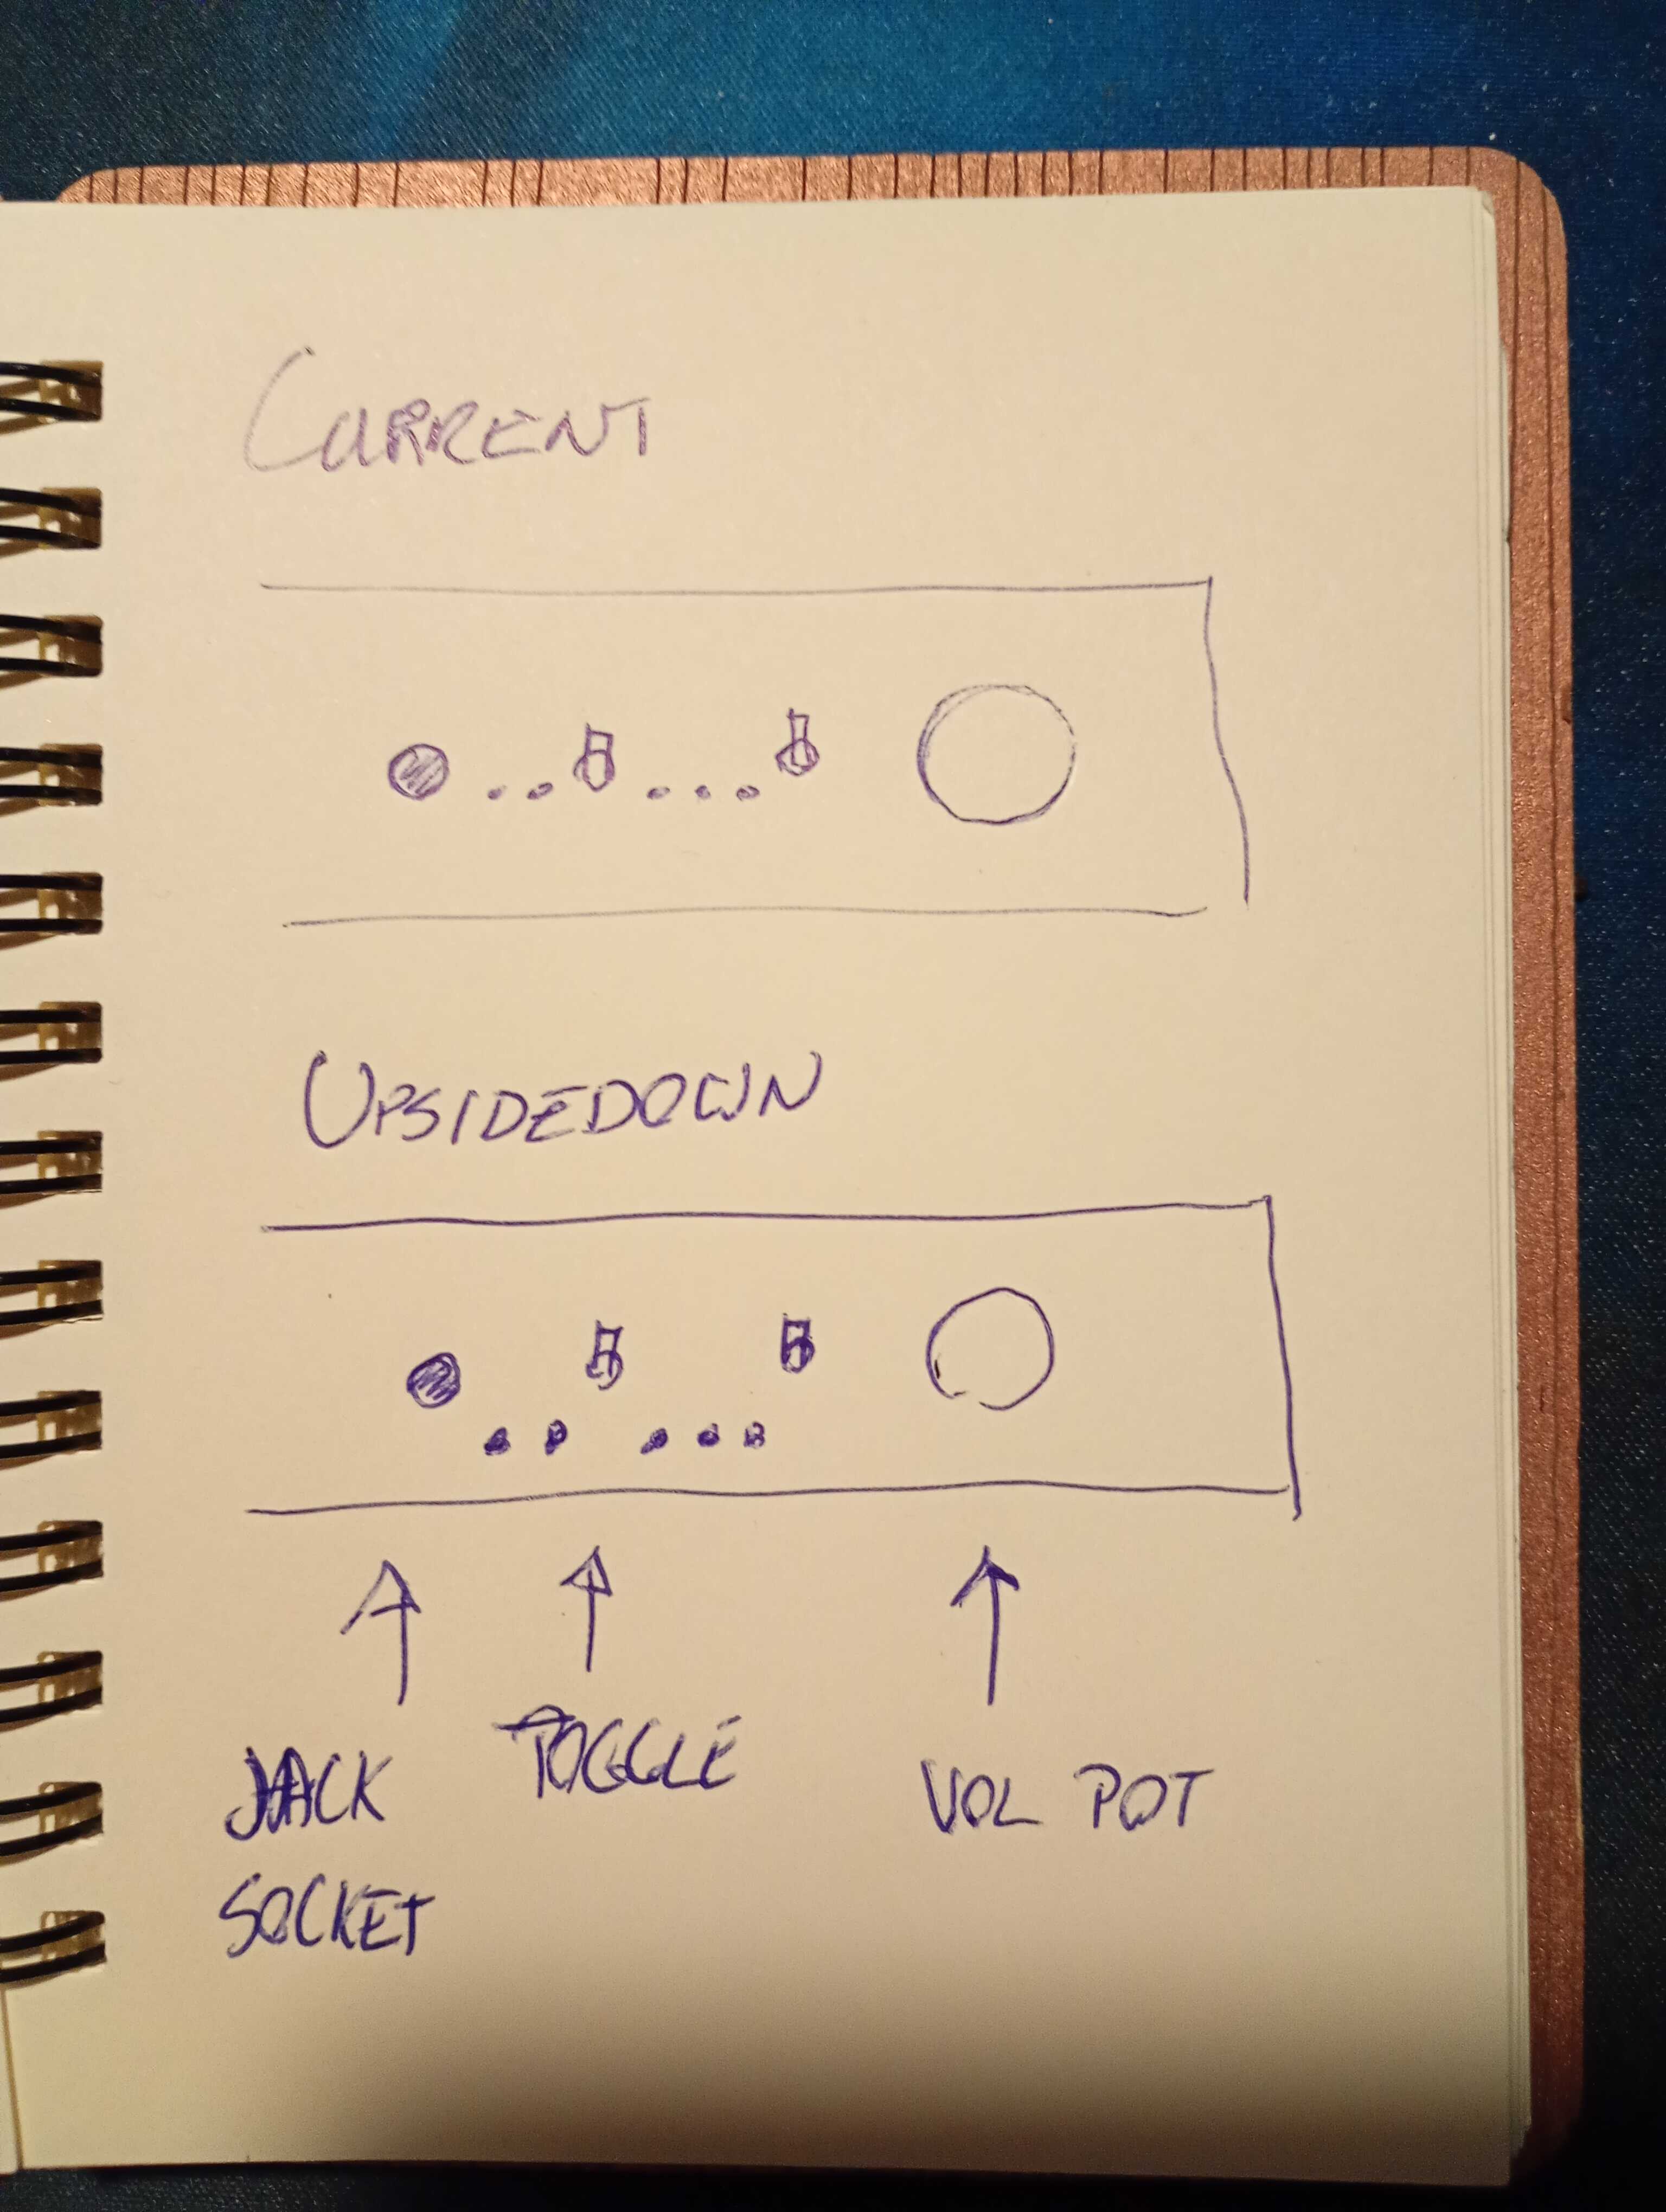 CURRENT
UPSIDEDOWN
JACK TOGGLE VOL POT
SOCKET